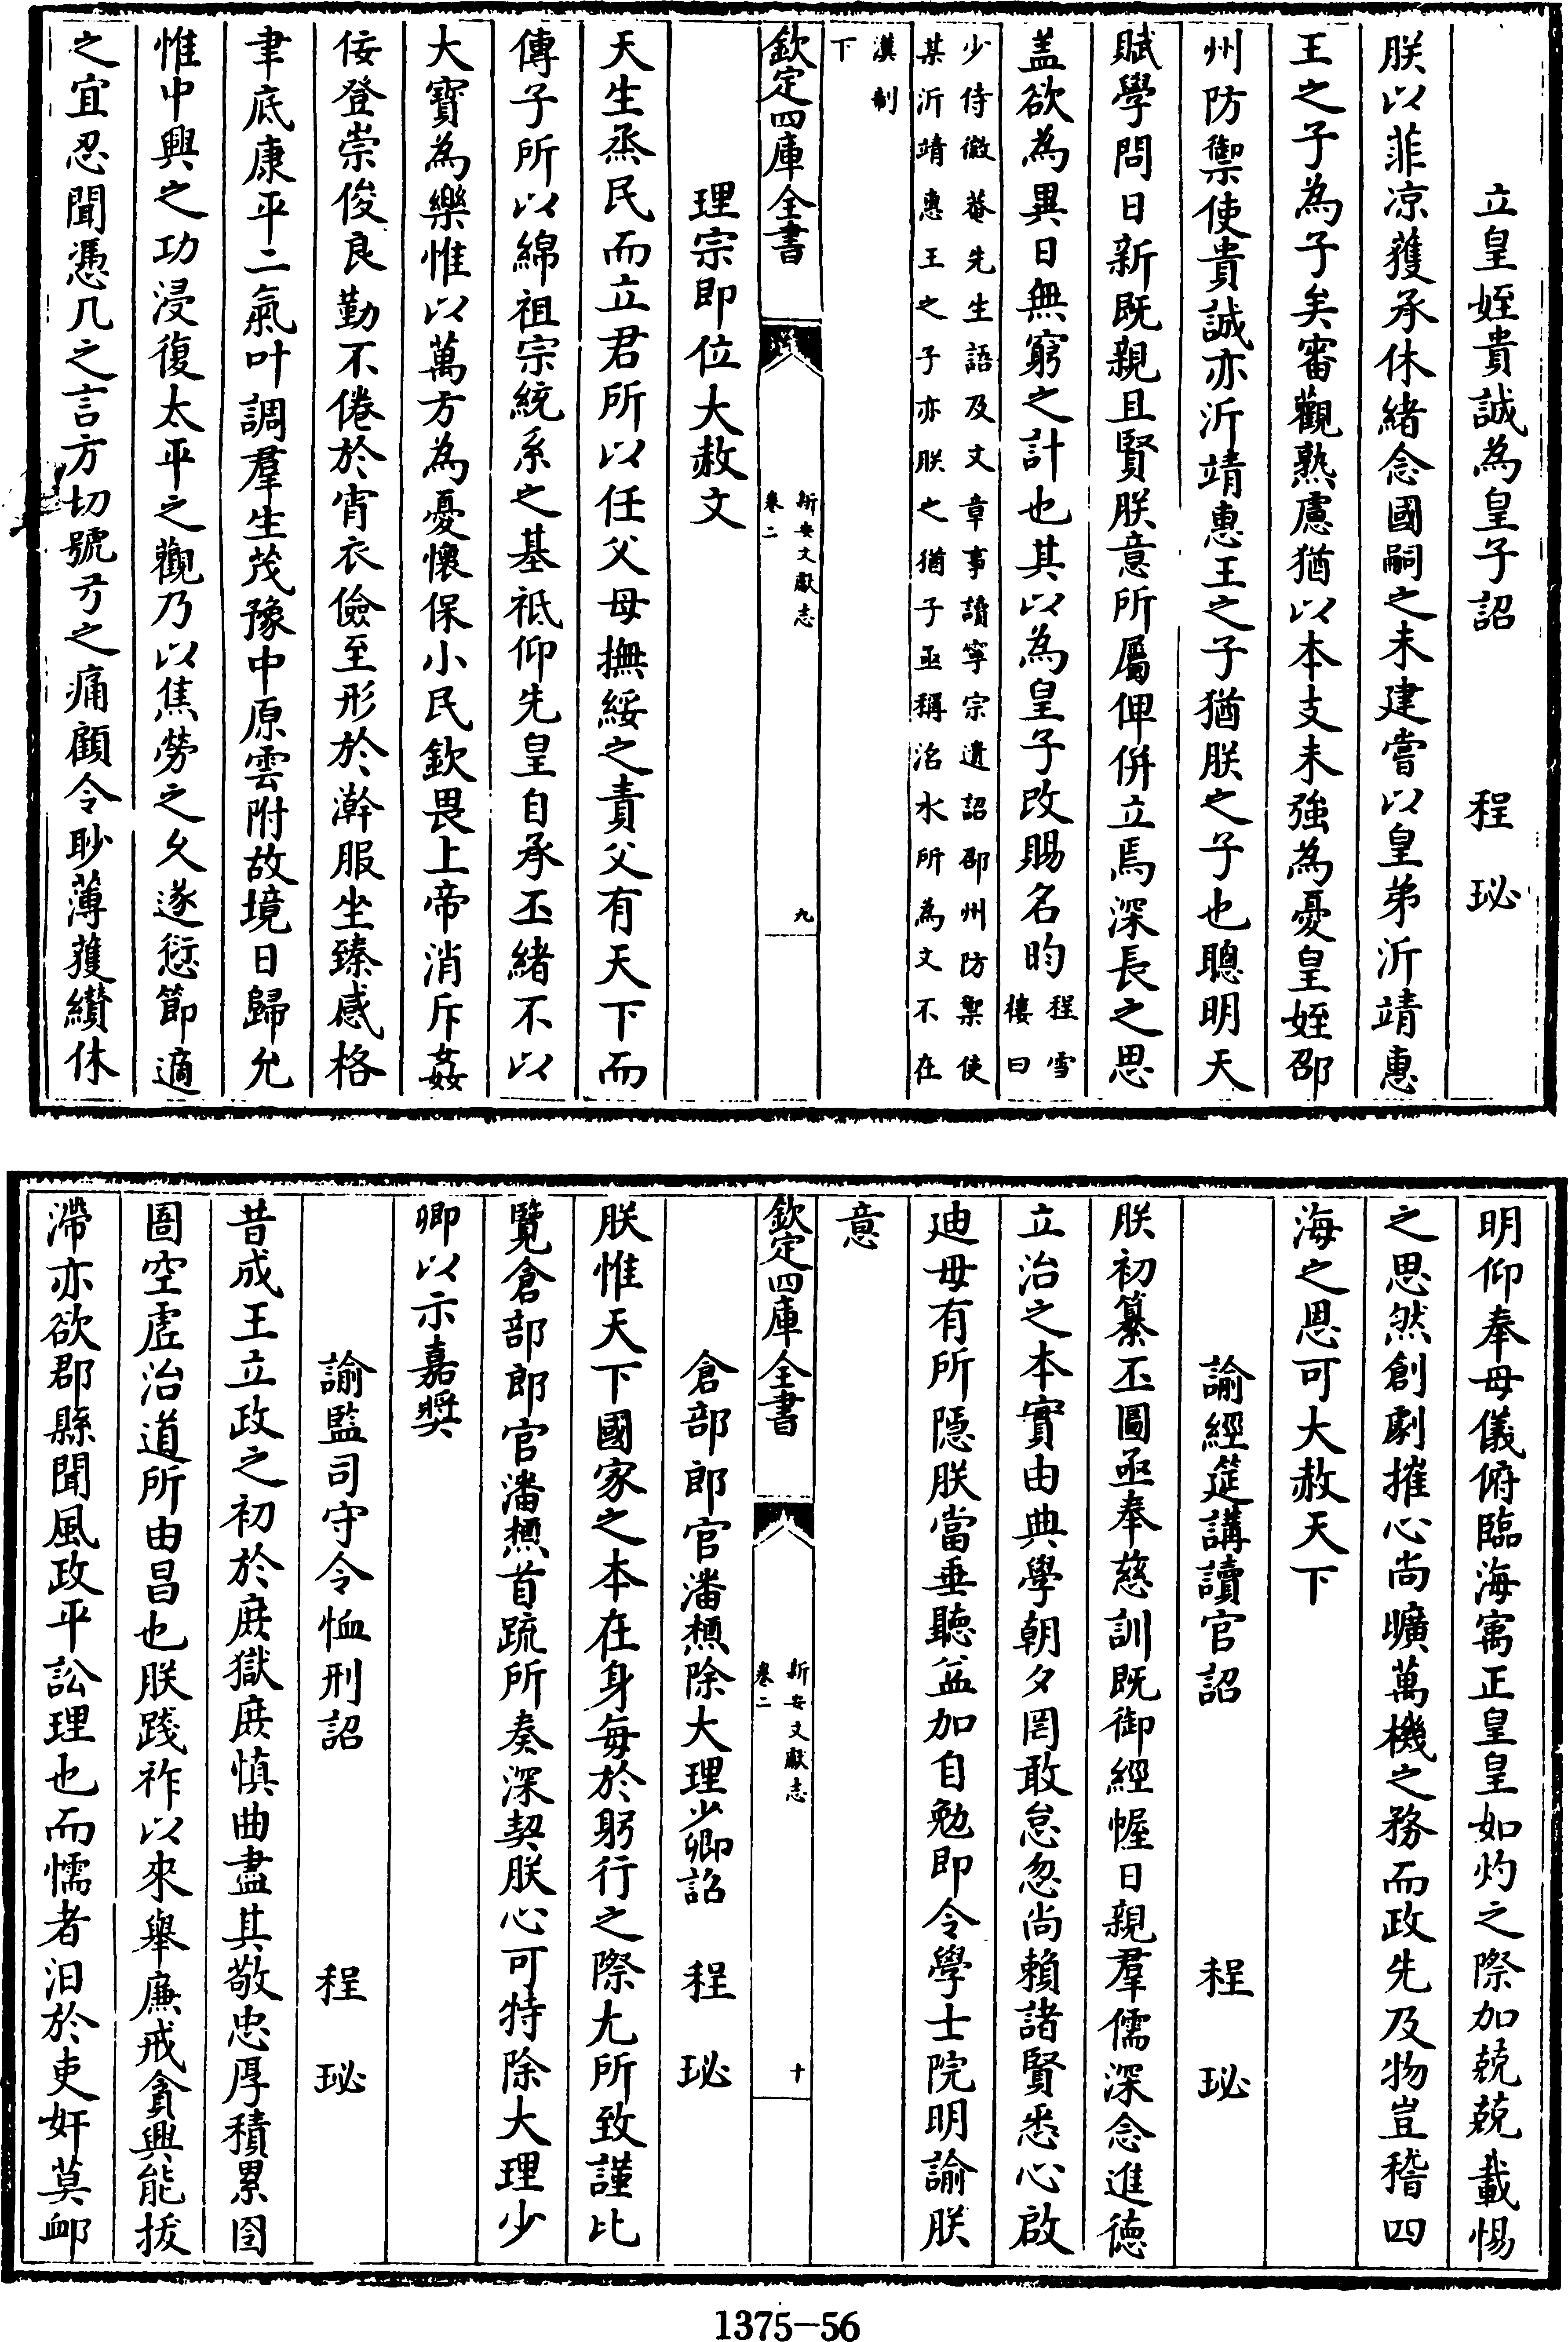 立皇姪貴誠為皇子詔　程珌
朕以菲凉獲承休緒念國嗣之未建嘗以皇弟沂靖惠
王之子為子矣審觀熟慮猶以本支未強為憂皇姪邵
州防禦使貴誠亦沂靖惠王之子猶朕之子也聰明天
賦學問日新既親且賢朕意所屬俾併立焉深長之思
盖欲為異日無窮之計也其以為皇子改賜名昀程雪
樓曰
少侍徽菴先生語及文章事讀寧宗遺詔邵州防禦使
某沂靖惠王之子亦朕之猶子亟稱洺水所為文不在
漢制
下
欽定四庫全書　新安文獻志
卷二　九
理宗即位大赦文
天生烝民而立君所以任父母撫綏之責父有天下而
傳子所以綿祖宗統系之基祗仰先皇自承丕緒不以
大寶為樂惟以萬方為憂懷保小民欽畏上帝消斥姦
佞登崇俊良勤不倦於宵衣儉至形於澣服坐臻感格
聿底康平二氣叶調羣生茂豫中原雲附故境日歸允
惟中興之功浸復太平之觀乃以焦勞之久遂愆節適
之宜忍聞憑几之言方切號弓之痛顧令眇薄獲纘休
明仰奉母儀俯臨海寓正皇皇如灼之際加兢兢載惕
之思然創劇摧心尚曠萬機之務而政先及物豈稽四
海之恩可大赦天下
諭經筵講讀官詔　程珌
朕初纂丕圖亟奉慈訓既御經幄日親羣儒深念進德
立治之本實由典學朝夕罔敢怠忽尚賴諸賢悉心啟
廸毋有所隱朕當垂聽益加自勉即令學士院明諭朕
意
欽定四庫全書　新安文獻志
卷二　十
倉部郎官潘櫄除大理少卿詔　程珌
朕惟天下國家之本在身每於躬行之際尤所致謹比
覽倉部郎官潘櫄首疏所奏深契朕心可特除大理少
卿以示嘉奬
諭監司守令恤刑詔　程珌
昔成王立政之初於庶獄庶慎曲盡其敬忠厚積累囹
圄空虛治道所由昌也朕踐祚以來舉廉戒貪興能拔
滯亦欲郡縣聞風政平訟理也而懦者汩於吏奸莫卹
1375—56